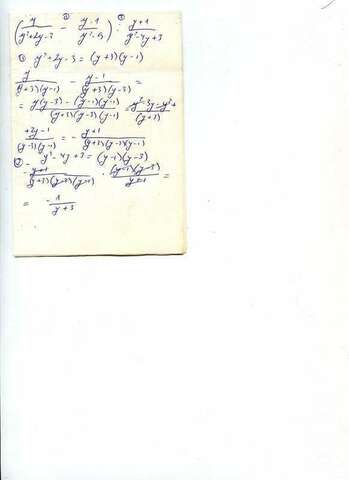 (y/(y²+2y-3) - (y-1)/(y²-9)) : (y+1)/(y²-4y+3)
① y²+2y-3 = (y+3)(y-1)
y/((y+3)(y-1)) - (y-1)/((y+3)(y-3)) =
= (y(y-3) - (y-1)(y-1))/((y+3)(y-3)(y-1)) = (y²-3y-y²+
+2y-1)/((y+3)(y-3)(y-1)) = - (y+1)/((y+3)(y-3)(y-1))
② y²-4y+3 = (y-1)(y-3)
- (y+1)/((y+3)(y-3)(y-1)) · ((y-1)(y-3))/(y+1) =
= - 1/(y+3)